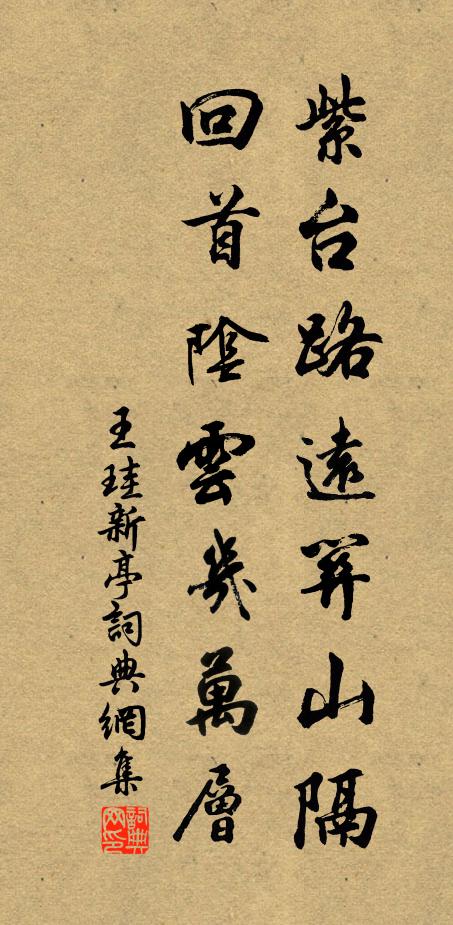 紫台路遠關山隔
回首陰雲幾萬層
王珪新亭詞典網集
詞典網印